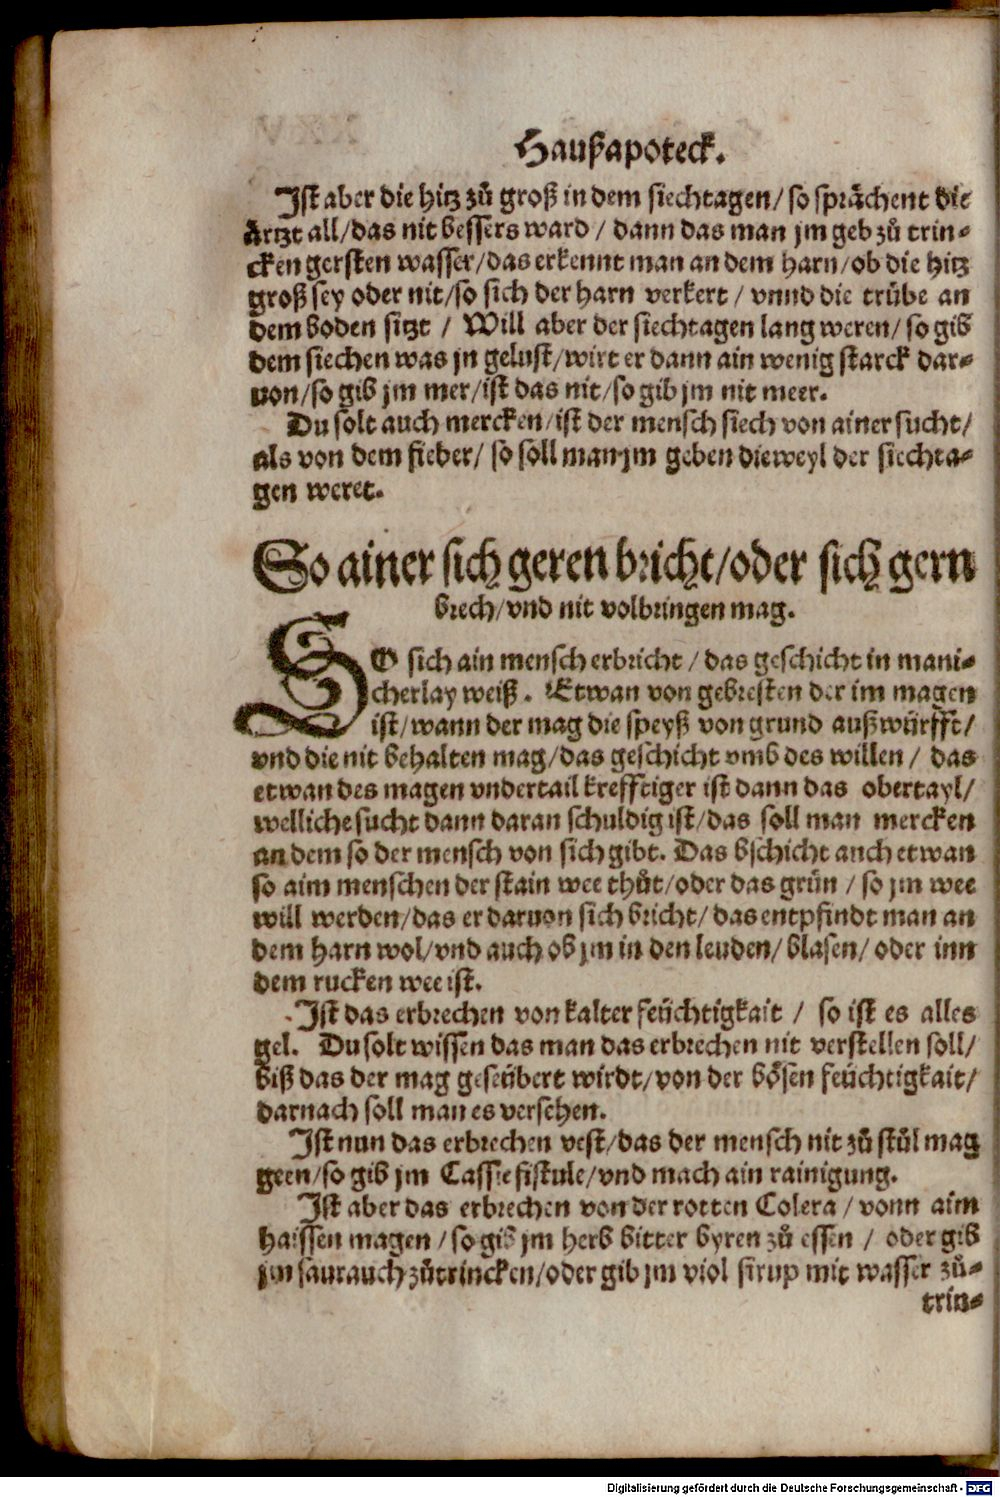 Haußapoteck.
Ist aber die hitz zů groß in dem siechtagen/ so sprächent die
ärtzt all/das nit bessers ward / dann das man jm geb zů trin⸗
cken gersten wasser/das erkennt man an dem harn/ob die hitz
groß sey oder nit/so sich der harn verkert / vnnd die trübe an
dem boden sitzt / Will aber der siechtagen lang weren/ so gib
dem siechen was jn gelust/wirt er dann ain wenig starck dar⸗
von/so gib jm mer/ist das nit/so gib jm nit meer.
Du solt auch mercken/ist der mensch siech von ainer sucht/
als von dem fieber/ so soll man jm geben dieweyl der siechta⸗
gen weret.
So ainer sich geren bricht/oder sich gern
brech/vnd nit volbringen mag.
SO sich ain mensch erbricht / das geschicht in mani⸗
cherlay weiß. Etwan von gebresten der im magen
ist/wann der mag die speyß von grund außwürfft/
vnd die nit behalten mag/das geschicht vmb des willen / das
etwan des magen vndertail krefftiger ist dann das obertayl/
welliche sucht dann daran schuldig ist/das soll man mercken
an dem so der mensch von sich gibt. Das bschicht auch etwan
so aim menschen der stain wee thůt/oder das grün / so jm wee
will werden/das er daruon sich bricht/das entpfindt man an
dem harn wol/vnd auch ob jm in den lenden/ blasen/ oder inn
dem rucken wee ist.
Ist das erbrechen von kalter feüchtigkait / so ist es alles
gel. Du solt wissen das man das erbrechen nit verstellen soll/
biß das der mag geseübert wirdt/von der bösen feüchtigkait/
darnach soll man es versehen.
Ist nun das erbrechen vest/das der mensch nit zů stůl mag
geen/so gib jm Cassiefistule/vnd mach ain rainigung.
Ist aber das erbrechen von der rotten Colera / vonn aim
haissen magen / so gib jm herb bitter byren zů essen / oder gib
jm saurauch zůtrincken/oder gib jm viol sirup mit wasser zů⸗
trin⸗
Digitalisierung gefördert durch die Deutsche Forschungsgemeinschaft - DFG